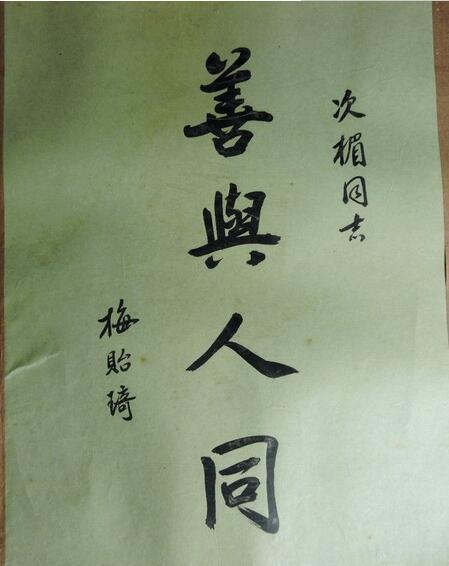 次楣同志
善與人同
梅貽琦